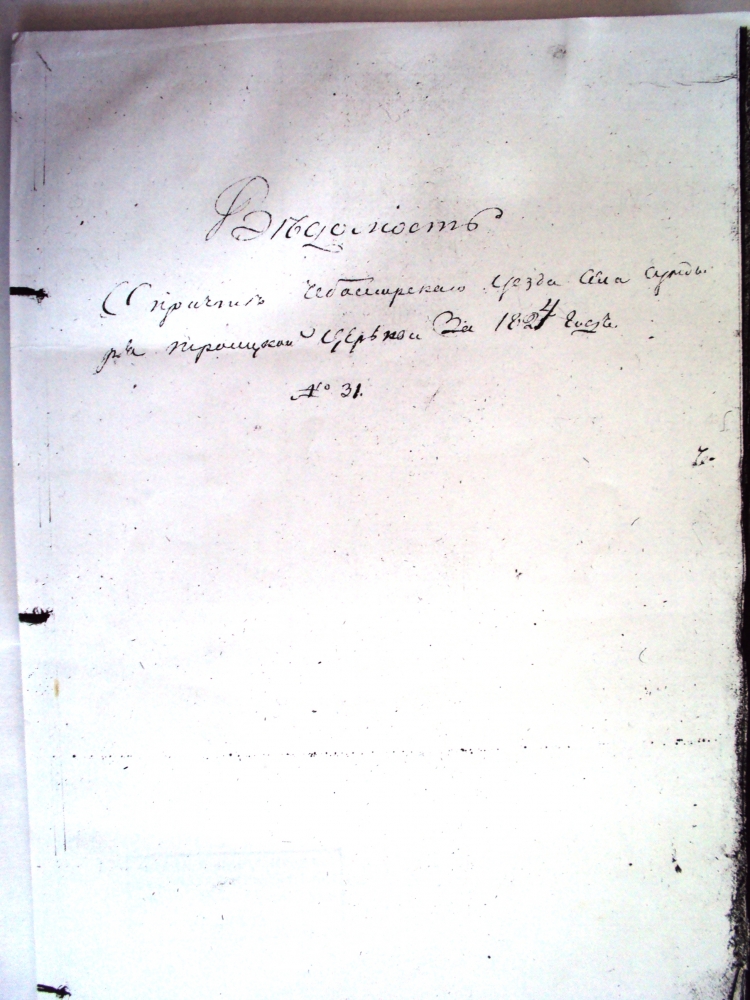 Вѣдомость
О причтѣ Чебоксарскаго уезда села сунды
ря троицкой Церькви За 1824 годъ.
№ 31.